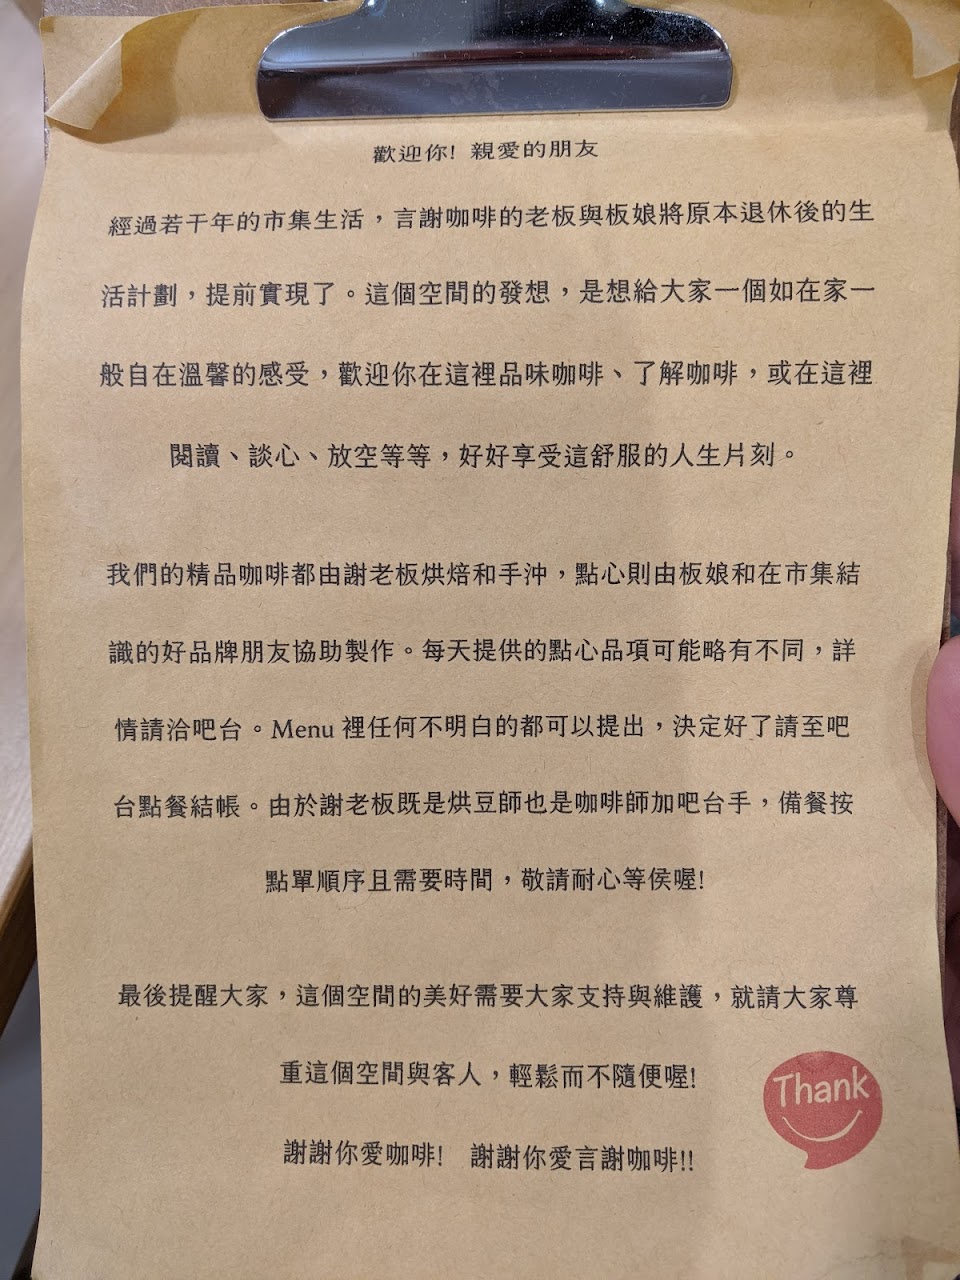 歡迎你! 親愛的朋友
經過若干年的市集生活，言謝咖啡的老板與板娘將原本退休後的生
活計劃，提前實現了。這個空間的發想，是想給大家一個如在家一
般自在溫馨的感受，歡迎你在這裡品味咖啡、了解咖啡，或在這裡
閱讀、談心、放空等等，好好享受這舒服的人生片刻。
我們的精品咖啡都由謝老板烘焙和手沖，點心則由板娘和在市集結
識的好品牌朋友協助製作。每天提供的點心品項可能略有不同，詳
情請洽吧台。Menu 裡任何不明白的都可以提出，決定好了請至吧
台點餐結帳。由於謝老板既是烘豆師也是咖啡師加吧台手，備餐按
點單順序且需要時間，敬請耐心等侯喔!
最後提醒大家，這個空間的美好需要大家支持與維護，就請大家尊
重這個空間與客人，輕鬆而不隨便喔!
謝謝你愛咖啡! 謝謝你愛言謝咖啡!!
Thank